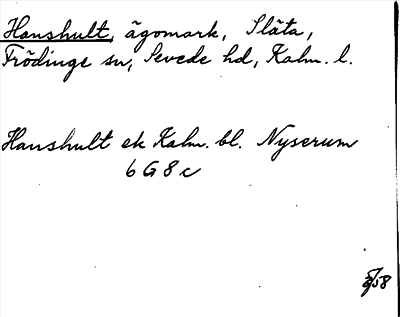 Hanshult, ägomark, Släta,
Frödinge sn, Sevede hd, Kalm. l.
Hanshult ek Kalm. bl. Nyserum
6 G 8 c
58